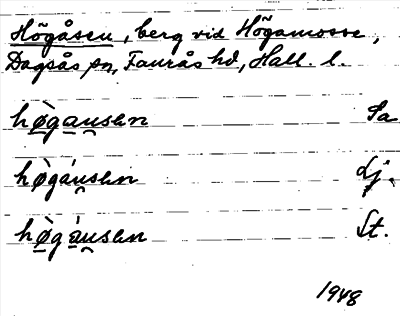 Högåsen, berg vid Högamosse,
Dagsås sn, Faurås hd, Hall. l.
hø̀gau̯sən Sa
hø̀gáu̯sən Lj.
hø̀gàu̯sən St.
1948